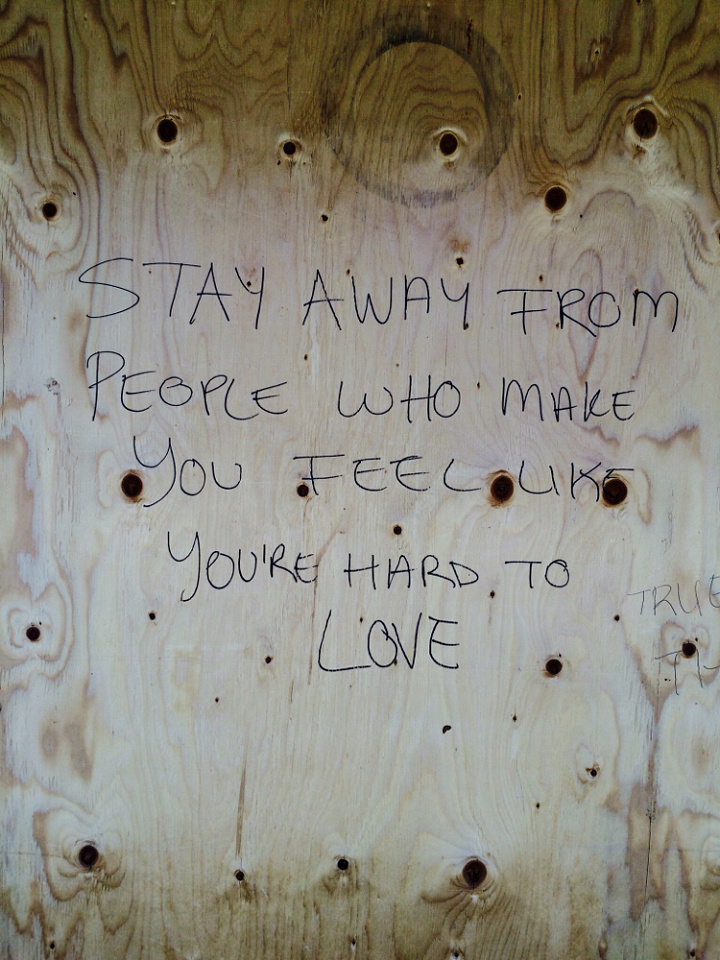 STAY AWAY FROM
PEOPLE WHO MAKE
YOU FEEL LIKE
YOU'RE HARD TO
LOVE
TRUE